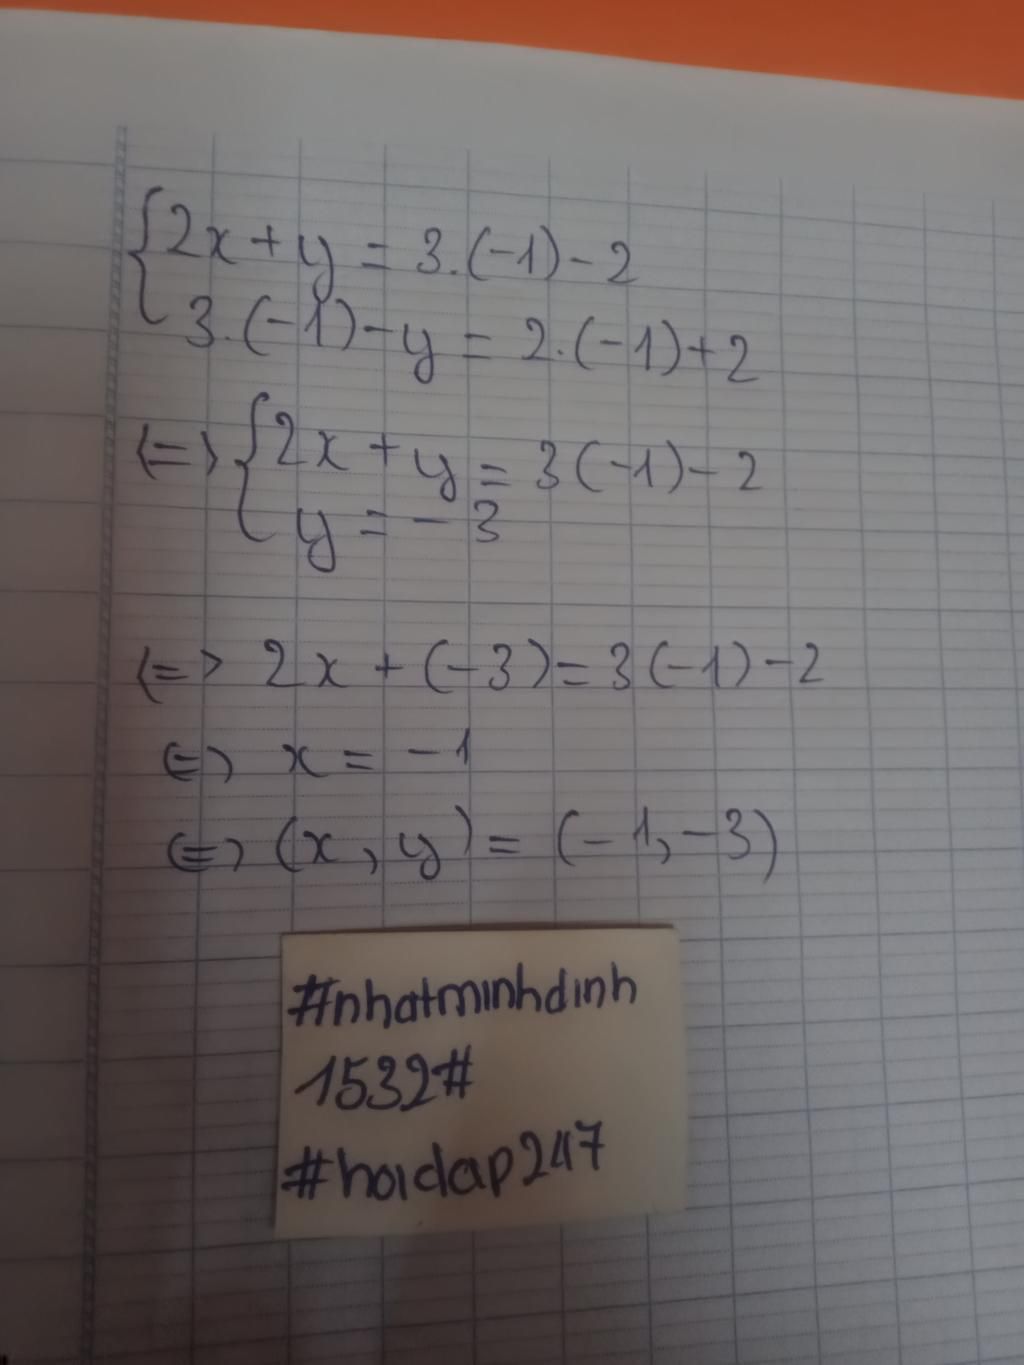 {2x + y = 3.(-1) - 2
3.(-1) - y = 2.(-1) + 2
<=> {2x + y = 3(-1) - 2
y = - 3
<=> 2x + (-3) = 3(-1) - 2
<=> x = -1
<=> (x, y) = (-1, -3)
#nhatminhdinh
1532#
#hoidap247